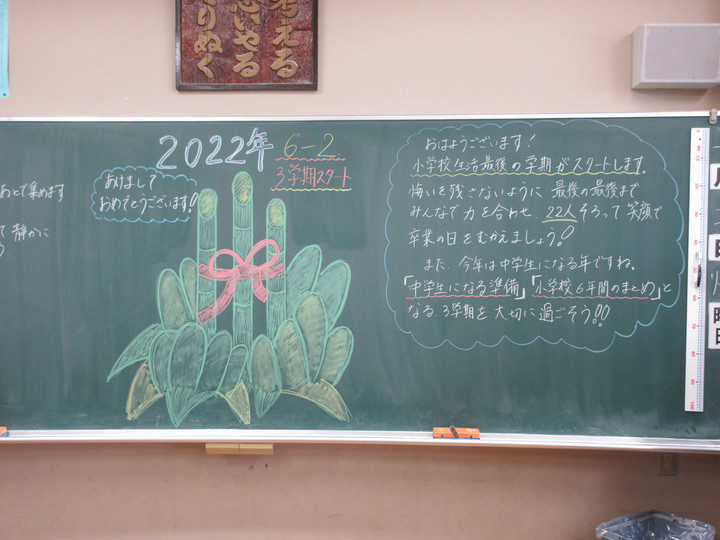 考える
思いやる
やりぬく
2022年 6-2
3学期スタート
あけまして
おめでとうございます!
あとで集めます
て 静かに
おはようございます!
小学校生活最後の学期がスタートします。
悔いを残さないように 最後の最後まで
みんなで力を合わせ 22人そろって 笑顔で
卒業の日をむかえましょう!
また、今年は中学生になる年ですね。
「中学生になる準備」「小学校6年間のまとめ」と
なる 3学期を 大切に過ごそう!!
月
日
曜
日